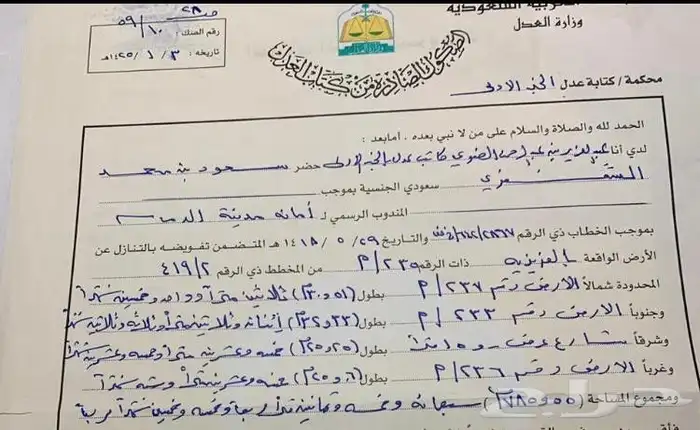 العربية السعودية
وزارة العدل
رقم الصك: ٥٩/١٠
تاريخه: ١٤٢٥/١/٣هـ
الصكوك الصادرة من كتاب العدل
محكمة/ كتابة عدل الخبر الأولى
الحمد لله والصلاة والسلام على من لا نبي بعده. أمابعد:
لدي أنا كاتب عدل الخبر الأولى حضر سعود بن سعد
سعودي الجنسية بموجب
المندوب الرسمي لـ أمانة مدينة الدمام
بموجب الخطاب ذي الرقم والتاريخ ١٤١٨/٥/٢٩هـ المتضمن تفويضه بالتنازل عن
الأرض الواقعة بالعزيزية ذات الرقم ٢٣٥/م من المخطط ذي الرقم ٤١٩/٢
المحدودة شمالاً الأرض رقم ٢٣٧/م بطول (٣٠٫٥١م) ثلاثين متراً وواحد وخمسين سنتمتراً
وجنوباً الأرض رقم ٢٣٣/م بطول (٣٢٫٣٣م) إثنان وثلاثين متراً وثلاثة وثلاثين سنتمتراً
وشرقاً شارع عرض بطول (٢٥٫٢٥م) خمسة وعشرين متراً وخمسة وعشرين سنتمتراً
وغرباً الأرض رقم ٢٣٦/م بطول (٢٥٫٠٦م) خمسة وعشرين متراً وستة سنتمتراً
ومجموع المساحة (٧٨٥٫٥٥م) سبعمائة وخمسة وثمانين متراً مربعاً وخمسة وخمسين سنتمتراً مربعاً
حراج